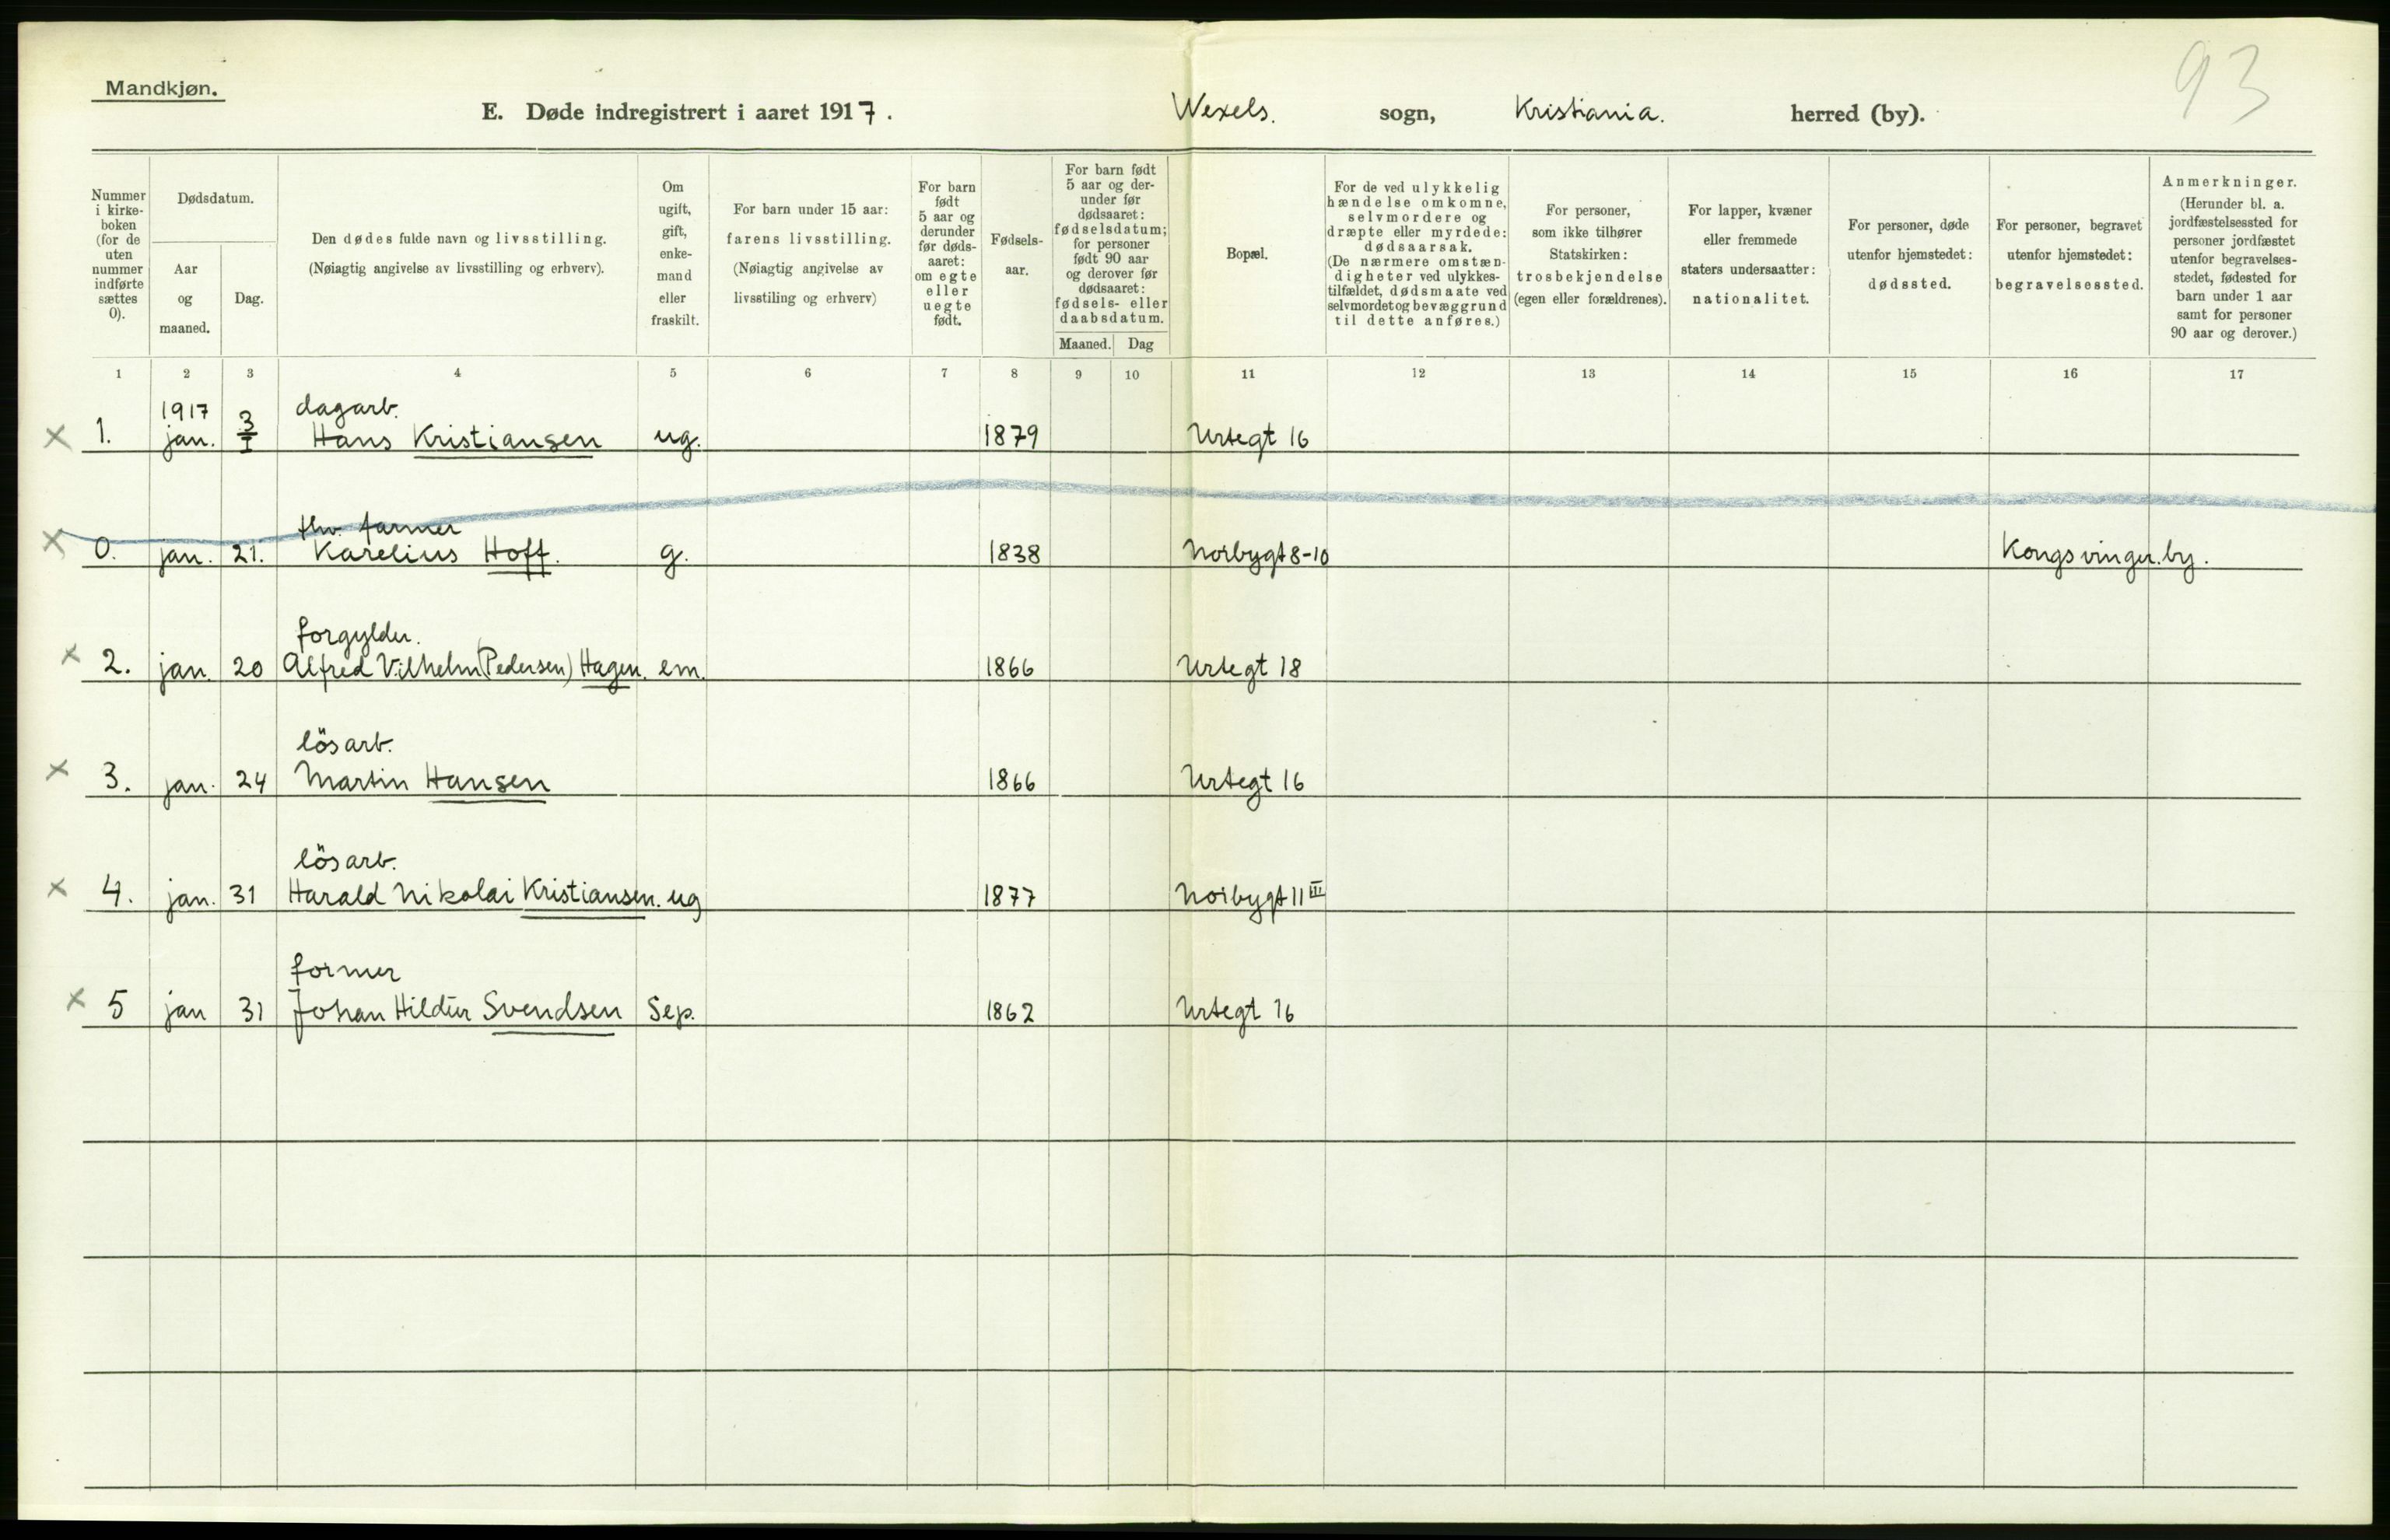 93
Mandkjøn.
E. Døde indregistrert i aaret 1917. Wexels. sogn, Kristiania. herred (by).
Nummer i kirke-boken (for de uten nummer indførte sættes 0).
Dødsdatum.
Aar og maaned.
Dag.
Den dødes fulde navn og livsstilling.
(Nøiagtig angivelse av livsstilling og erhverv).
Om ugift, gift, enke-mand eller fraskilt.
For barn under 15 aar:
farens livsstilling.
(Nøiagtig angivelse av
livsstiling og erhverv)
For barn født 5 aar og derunder før døds-aaret: om egte eller uegte født.
Fødsels-aar.
For barn født 5 aar og der-under før dødsaaret: fødselsdatum; for personer født 90 aar og derover før dødsaaret: fødsels- eller daabsdatum.
Maaned. Dag
Bopæl.
For de ved ulykkelig hændelse omkomne, selvmordere og dræpte eller myrdede: dødsaarsak. (De nærmere omstæn-digheter ved ulykkes-tilfældet, dødsmaate ved selvmordet og bevæggrund til dette anføres.)
For personer, som ikke tilhører Statskirken: trosbekjendelse (egen eller forældrenes).
For lapper, kvæner eller fremmede staters undersaatter: nationalitet.
For personer, døde utenfor hjemstedet: dødssted.
For personer, begravet utenfor hjemstedet: begravelsessted.
Anmerkninger. (Herunder bl. a. jordfæstelsessted for personer jordfæstet utenfor begravelses-stedet, fødested for barn under 1 aar samt for personer 90 aar og derover.)
1 2 3 4 5 6 7 8 9 10 11 12 13 14 15 16 17
1917 dagarb.
x 1. jan. 3/I Hans Kristiansen ug. 1879 Urtegt 16
fhv. farmer
x 0. jan. 21. Karelius Hoff. g. 1838 Norbygt 8-10 Kongsvinger by.
forgylder.
x 2. jan. 20 Alfred Vilhelm (Pedersen) Hagen. em. 1866 Urtegt 18
lösarb.
x 3. jan. 24 Martin Hansen 1866 Urtegt 16
lösarb.
x 4. jan. 31 Harald Nikolai Kristiansen. ug 1877 Norbygt 11 III
former
x 5 jan 31 Johan Hildur Svendsen Sep. 1862 Urtegt 16